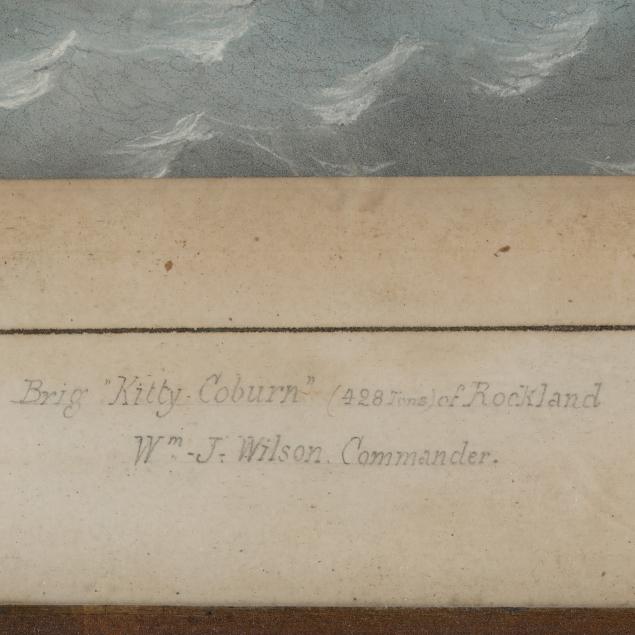 Brig "Kitty Coburn" (428 Tons) of Rockland
Wm. J. Wilson. Commander.